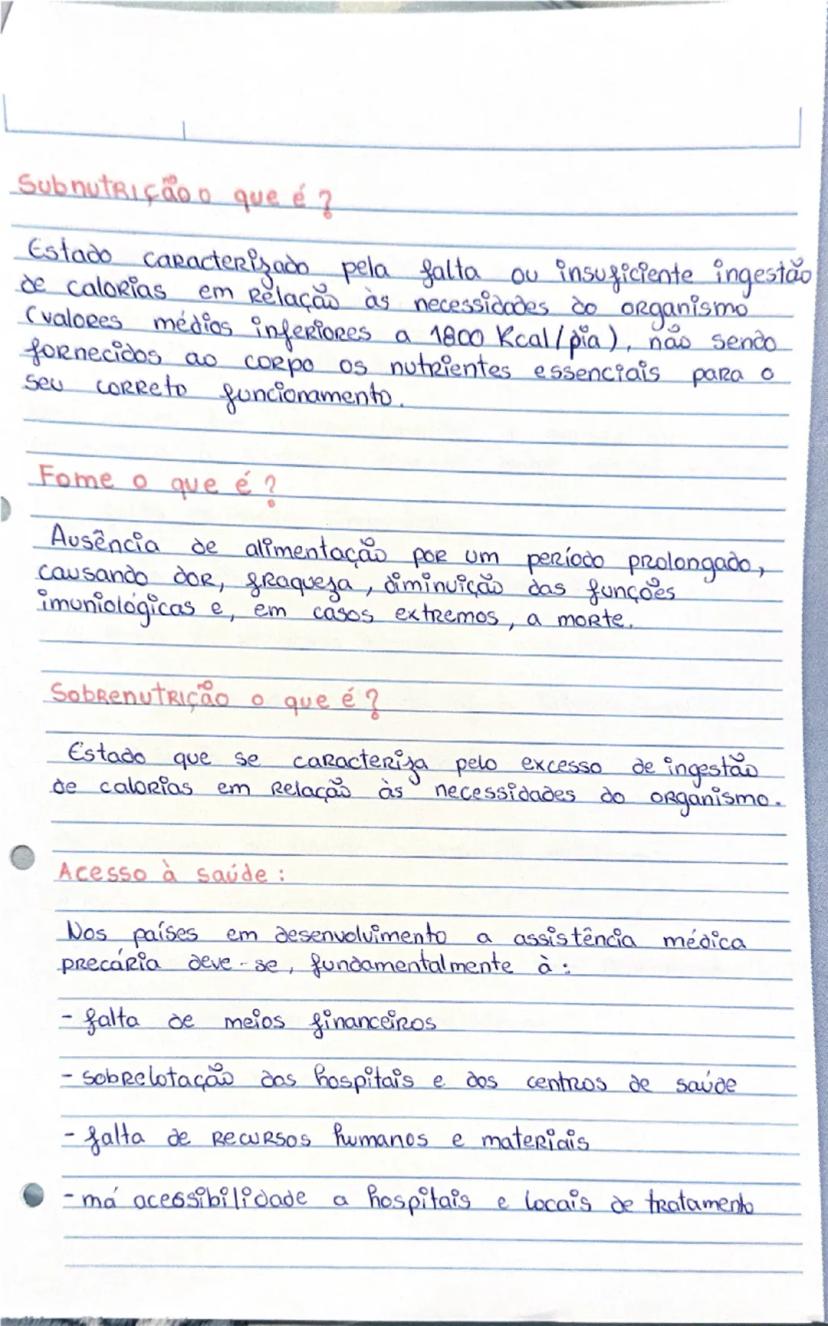 Subnutrição o que é?
Estado caracterizado pela falta ou insuficiente ingestão
de calorias em relação às necessidades do organismo
(valores médios inferiores a 1800 Kcal/pia), não sendo
fornecidos ao corpo os nutrientes essenciais para o
seu correto funcionamento.
Fome o que é?
Ausência de alimentação por um período prolongado,
causando dor, fraqueza, diminuição das funções
imuniológicas e, em casos extremos, a morte.
Sobrenutrição o que é?
Estado que se caracteriza pelo excesso de ingestão
de calorias em relação às necessidades do organismo.
Acesso à saúde:
Nos países em desenvolvimento a assistência médica
precária deve-se, fundamentalmente à:
- falta de meios financeiros
- sobrelotação dos hospitais e dos centros de saúde
- falta de recursos humanos e materiais
- má acessibilidade a hospitais e locais de tratamento